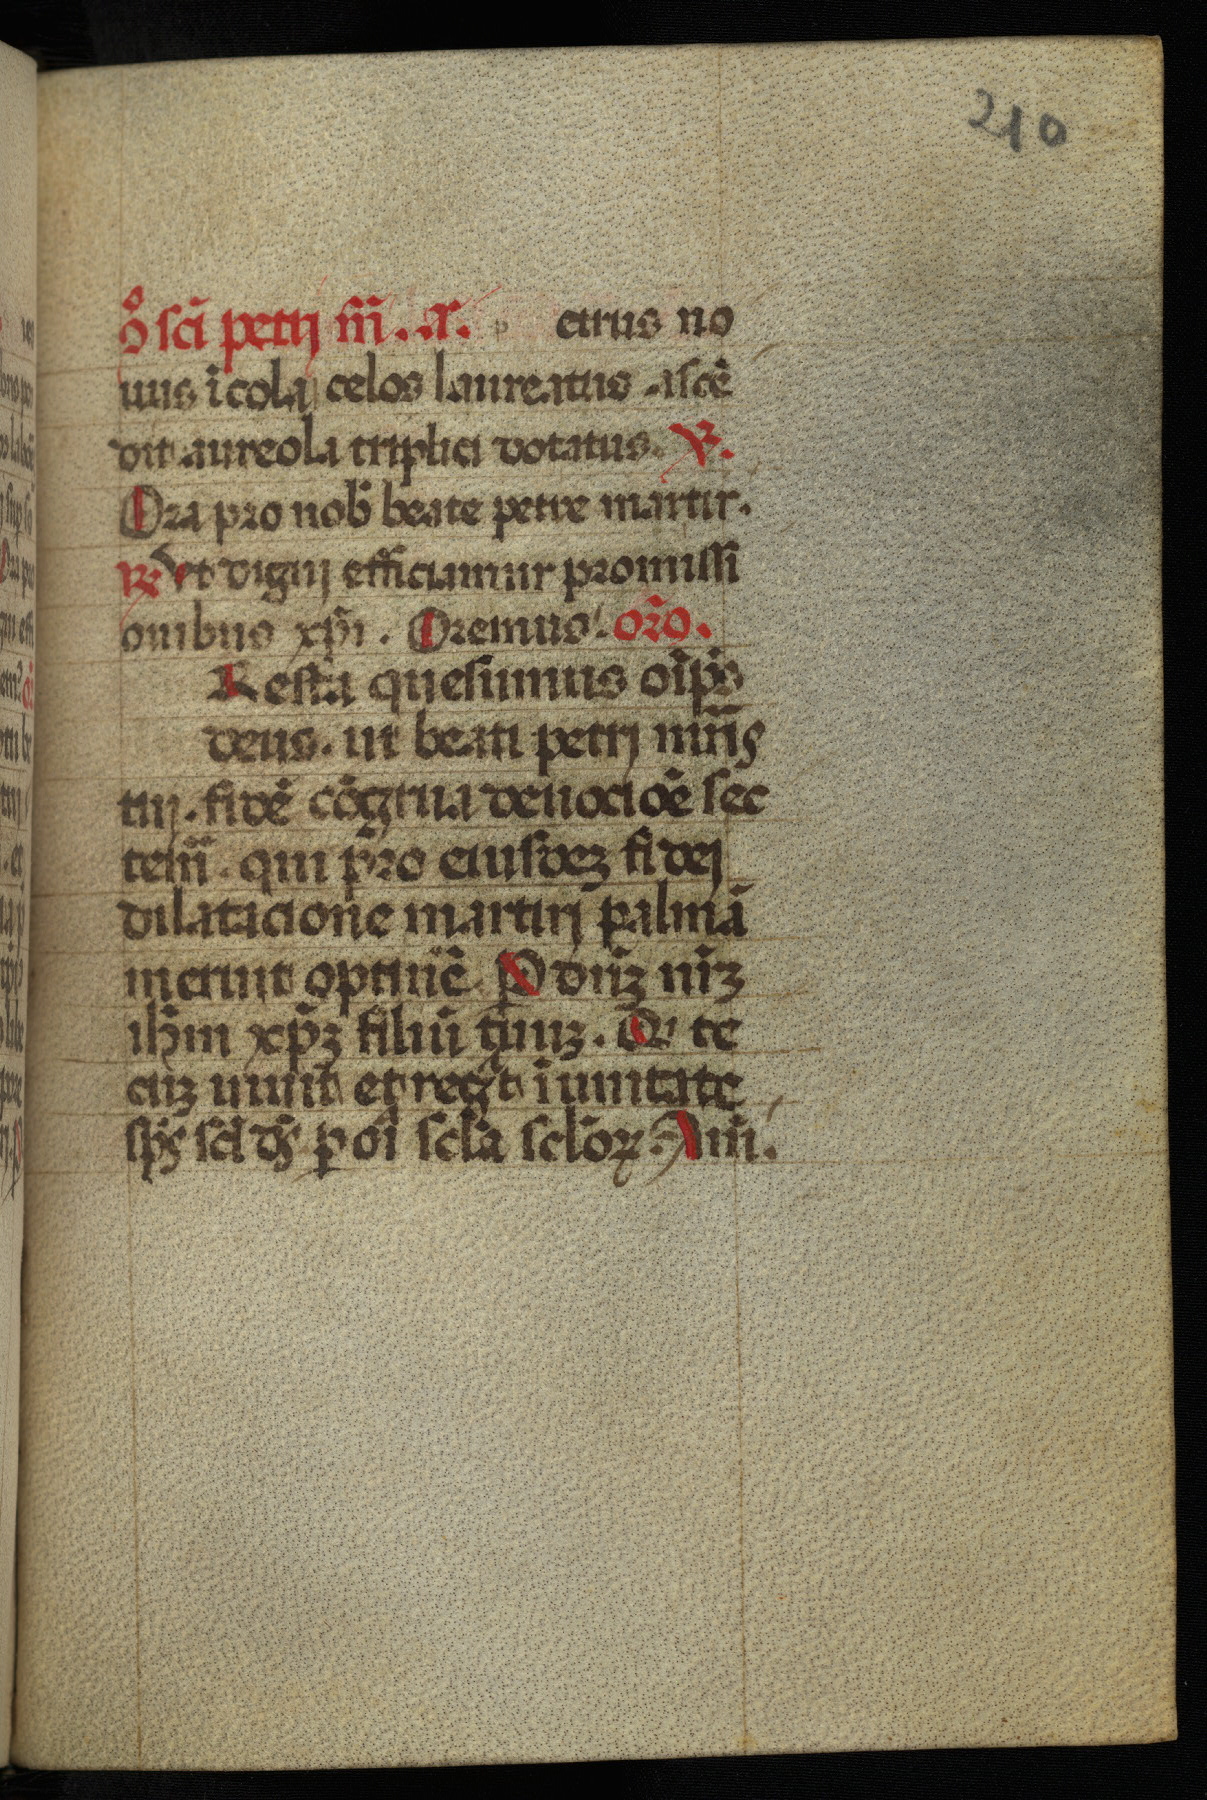 210
oͦ sci̅ petrj m̅. a̅. p etrus no
uus i̅cola celos laureatus . asce̅
dit aureola triplici dotatus. V̷.
Ora pro nob̅ beate petre martir.
R̷ Vt dignj efficiamur promissi̅
onibus xp̅i. Oremus. oro̅.
Resta quesumus oi̅p̅s
deus. ut beati petrj mr̅is
tui. fide̅ co̅grua deuocio̅e sec
tem̅. qui pro eiusdeʒ fidej
dilatacione martirj palma̅
meruit optiue̅. P dn̅ʒ nr̅ʒ
ih̅m xp̅ʒ filiu̅ tuuʒ. Qi te
cuʒ uiuit et regͣt i̅ unitate
sp̅s sci̅ ds̅ ꝑ oi̅ scl̅a scl̅oꝝ. Am̅.